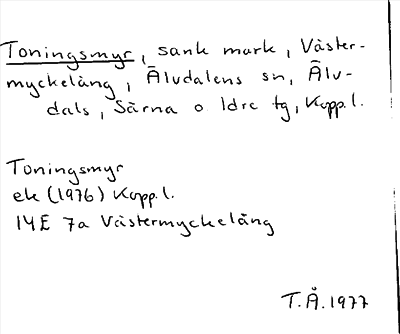 Toningsmyr, sank mark, Väster-
myckeläng, Älvdalens sn, Älv-
dals, Särna o Idre tg, Kopp.l.
Toningsmyr
ek (1976) Kopp.l.
14E 7a Västermyckeläng
T.Å.1977